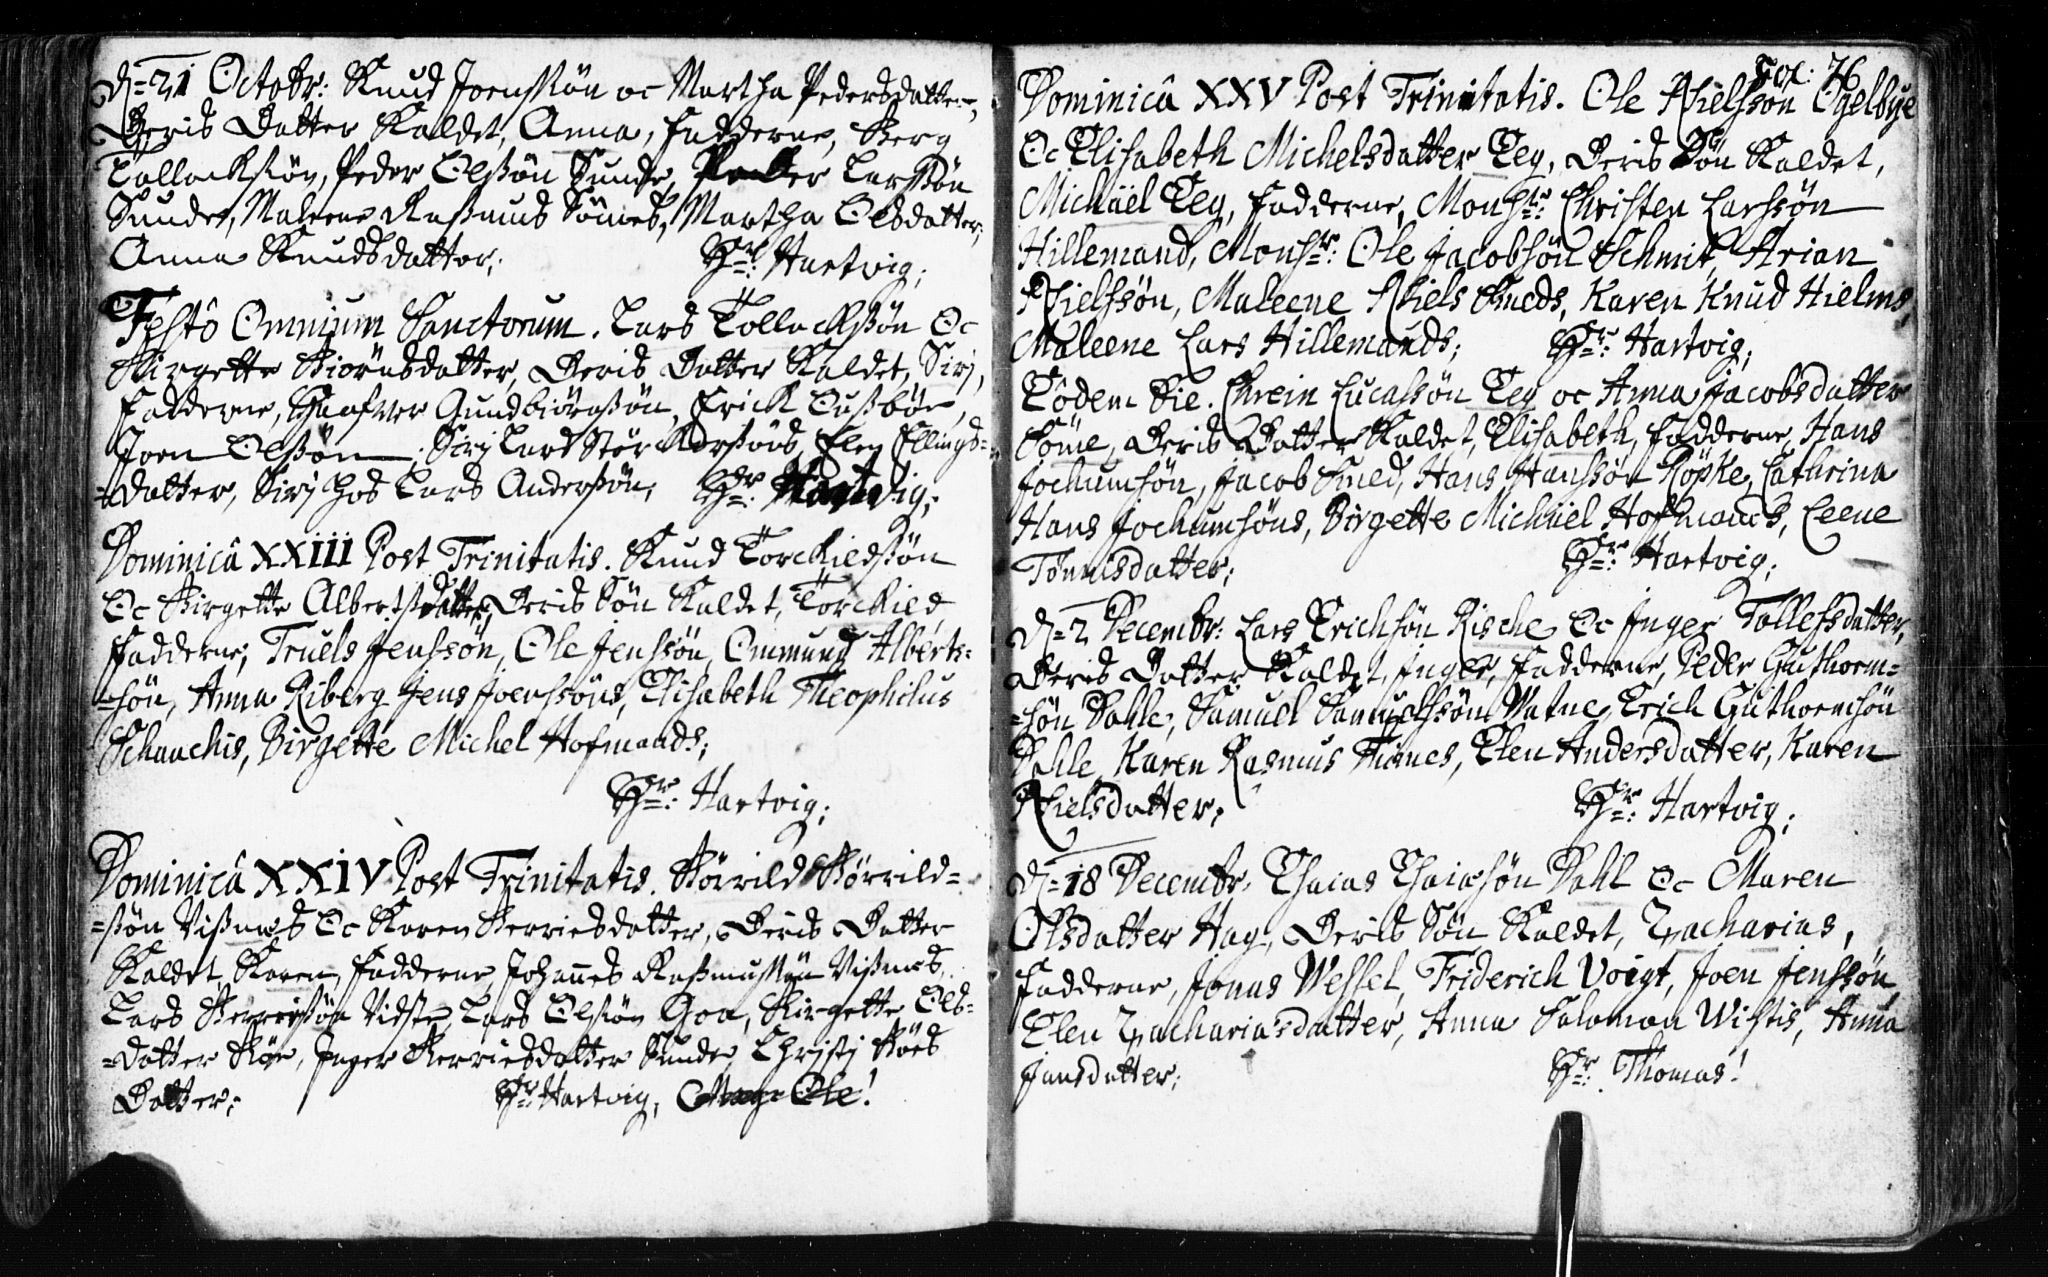 D= 21 Octobr: Knud Joenssøn oc Martha Pedersdatter,
Deris Datter Kaldet, Anna, Fadderne, Berg
Tollackssøn, Peder Olssøn Sunde, Peder Larssøn
Sunde, Maleene Rasmus Sømes, Martha Olsdatter,
Anna Knudsdatter; Hr: Hartvig;
Festô Omnium Sanctorum. Lars Tollackssøn Oc
Birgette Biörnsdatter, Deris Datter Kaldet, Sirj,
Fadderne, Gundbiörnssøn, Erick
Joen Olssøn, Sirj Lars Elen Ellings=
=datter, Sirj hos Lars Anderssøn; Hr: Hartvig;
Dominicâ XXIII Post Trinitatis. Knud Torckildssøn
Oc Birgette Albertsdatter, Deris Søn Kaldet, Torckild,
Fadderne; Truels Jenssøn, Ole Jenssøn, Ommund Alberts=
=søn, Anna Riberg Jens Joenssøns, Elisabeth Theophilus
Schanchis, Birgette Michel Hofmands;
Hr: Hartvig;
Dominicâ XXIV Post Trinitatis. Körrild Körrild=
=søn Visnes Oc Karen Sterriesdatter, Deris Datter
Kaldet, Karen, Fadderne, Johannes Rasmussøn Visnes,
Lars Vidste, Lars Olssøn Goa, Birgette Ols=
=datter Inger datter Sunde,
Datter; Hr: Hartvig, Ole!
Fol: 76
Dominicâ XXV Post Trinitatis. Ole Nielssøn Ogelbye
Oc Elisabeth Michelsdatter Teg, Deris Søn Kaldet,
Michäel Teg, Fadderne, Monsr: Christen Larssøn
Hillemand, Monsr: Ole Jacobsøn Schmit, Arian
Nielssøn, Maleene Niels Smeds, Karen Knud Hielms,
Maleene Lars Hillemands; Hr: Hartvig;
Eôdem Die. Lucassøn Teg oc Anna Jacobsdatter
Söme, Deris Datter Kaldet, Elisabeth, Fadderne, Hans
Jochumsøn, Jacob Smed, Hans Hanssøn Röpke, Catharina
Hans Jochumsøns, Birgette Michäel Hofmands, Leene
Tönnisdatter; Hr: Hartvig;
D= 2 Decembr: Lars Erichsøn Rische Oc Inger Tollefsdatter,
Deris Datter Kaldet, Inger, Fadderne, Peder Guthorm=
=søn Dahle, Samuel Samuelssøn Watne, Erich Guthormsøn
Dahle, Karen Rasmus Elen Andersdatter, Karen
Nielsdatter; Hr: Hartvig;
D= 18 Decembr. Esaias Esaiæsøn Dahl Oc Maren
Olsdatter Hag, Deris Søn Kaldet, Zacharias,
Fadderne, Jonas Wessel, Friderich Voigt, Joen Jenssøn,
Elen Zachariasdatter, Anna Salomon Wistis, Anna
Jansdatter; Hr: Thomas!